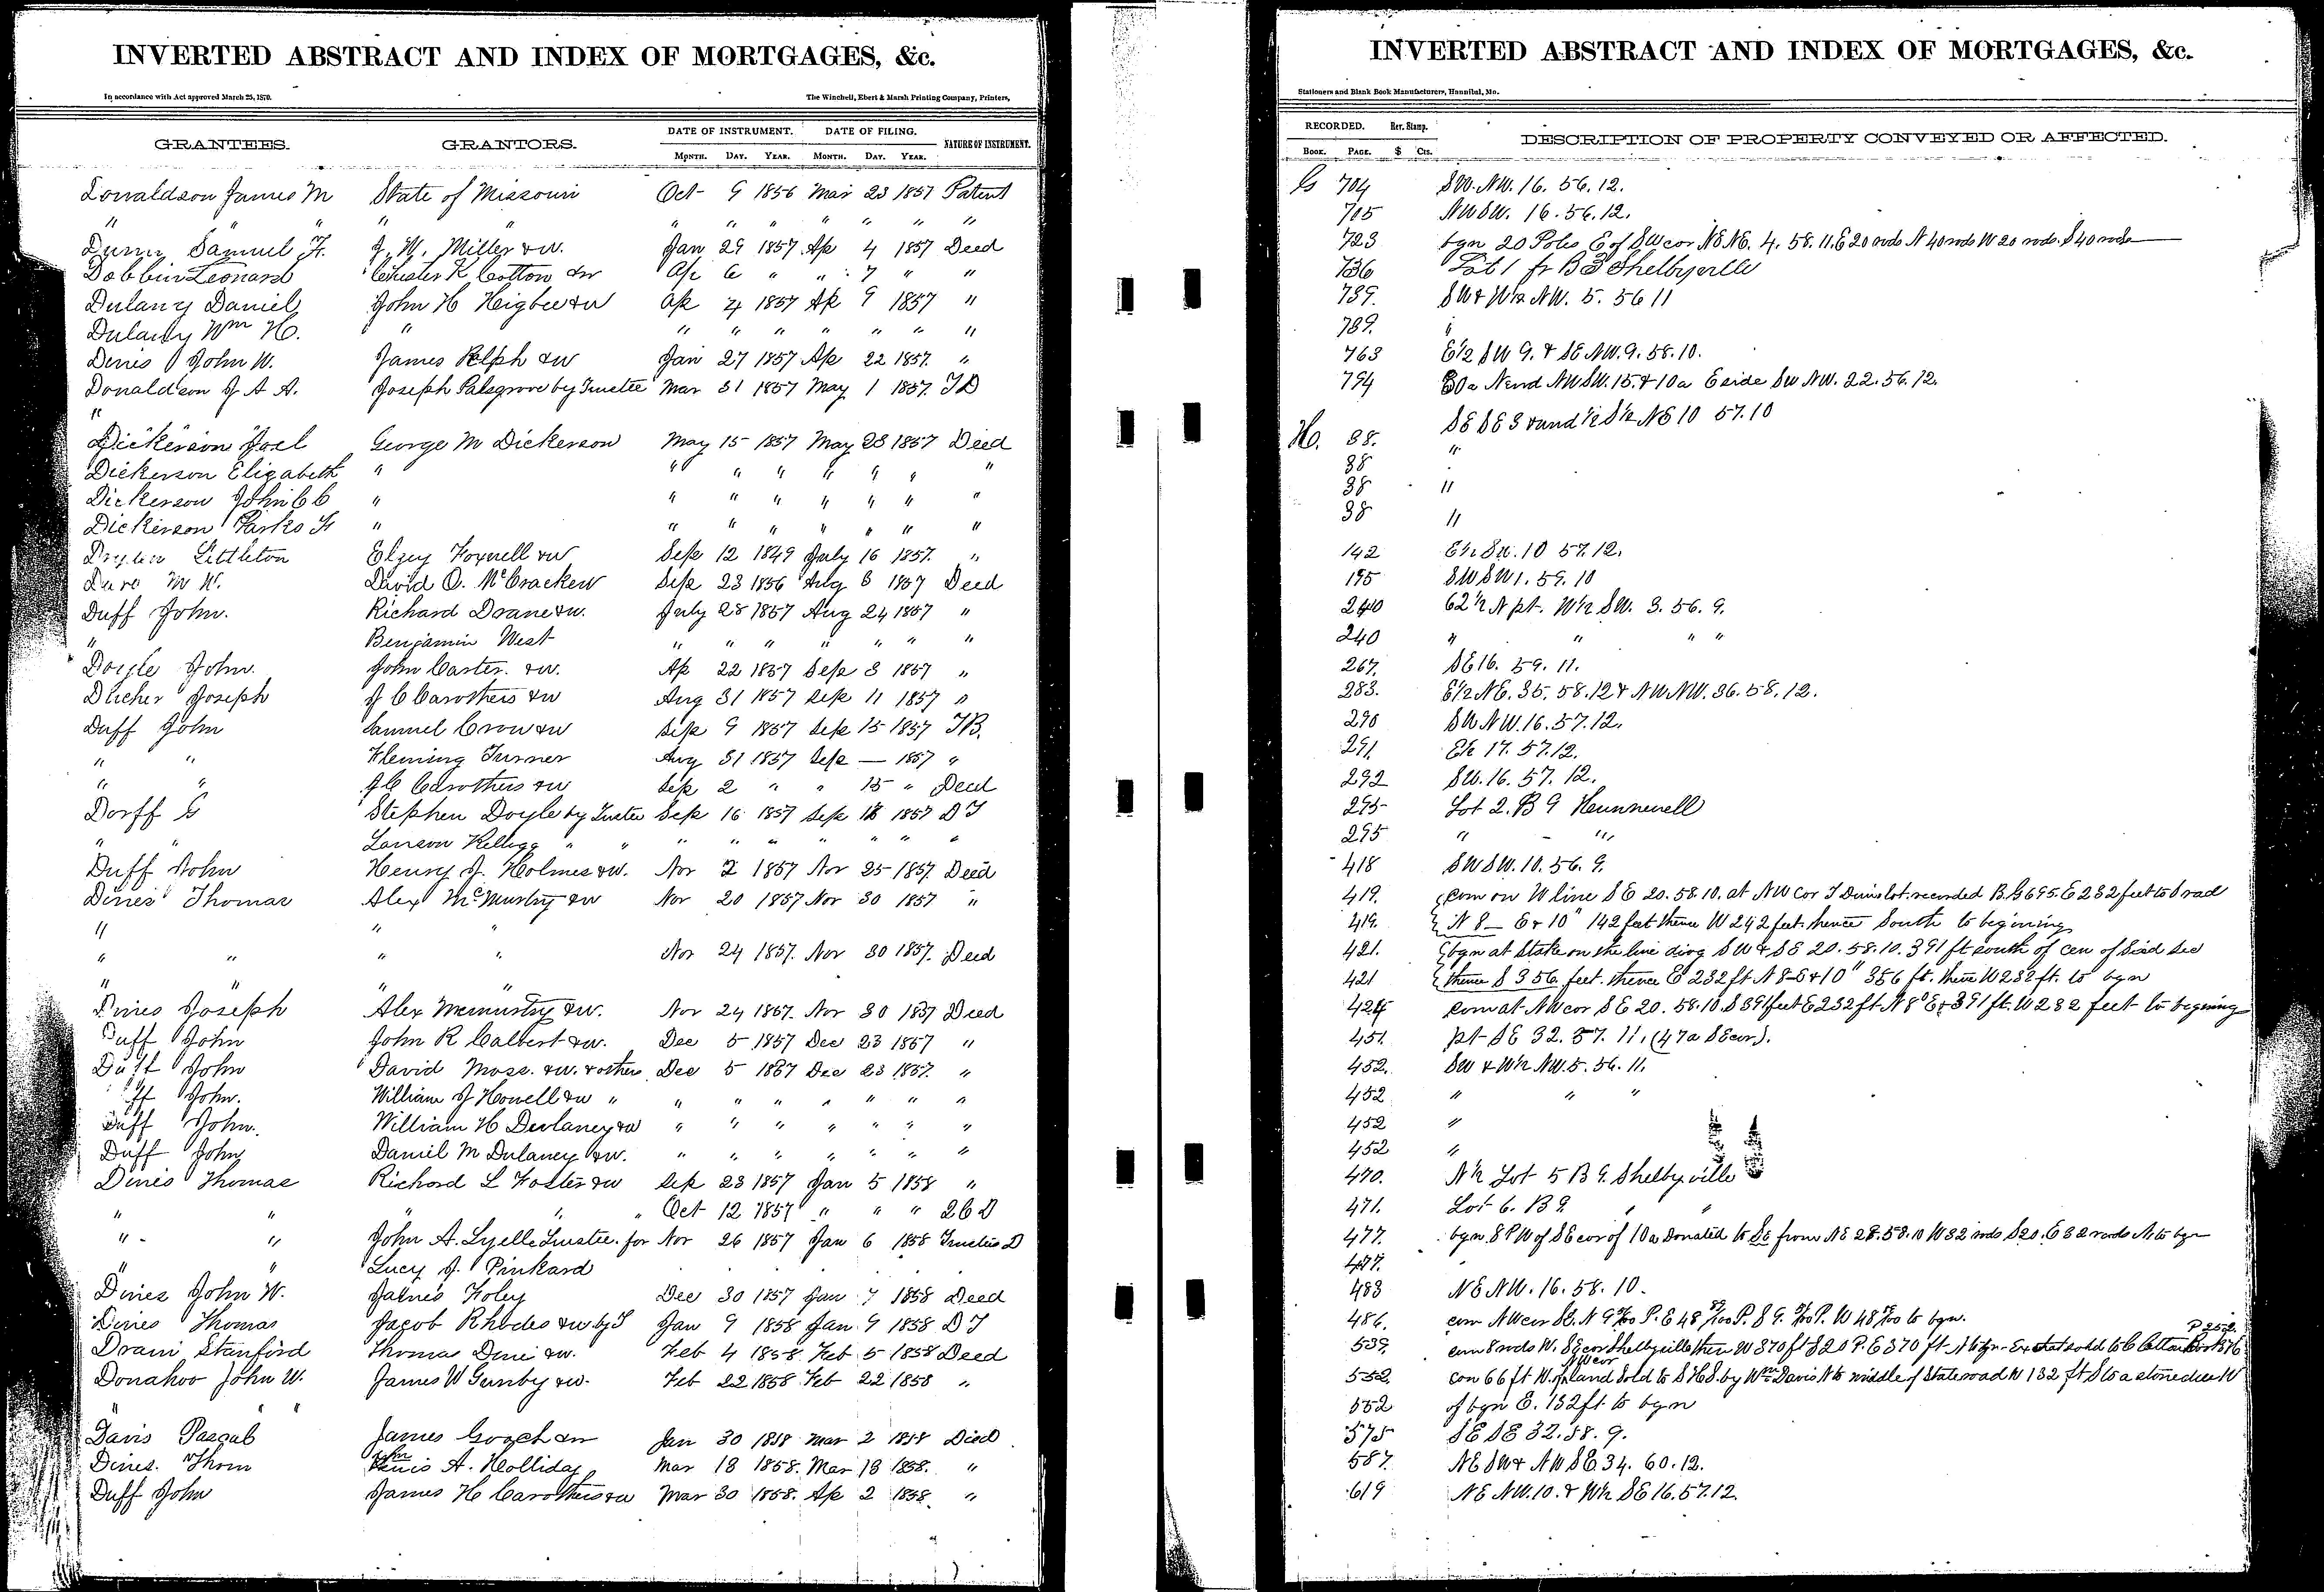 INVERTED ABSTRACT AND INDEX OF MORTGAGES, &c.
In accordance with Act approved March 25, 1870.
The Winchell, Ebert & Marsh Printing Company, Printers,
GRANTEES. GRANTORS. DATE OF INSTRUMENT. DATE OF FILING. NATURE OF INSTRUMENT.
MONTH. DAY. YEAR. MONTH. DAY. YEAR.
Donaldson James M State of Missouri Oct 9 1856 Mar 23 1857 Patent
" " " " " " " " " " " "
Dunn Samuel F. J. W. Miller &w. Jan 29 1857 Ap 4 1857 Deed
Dobbin Leonard Chester K Cotton &w Ap 6 " " 7 " "
Dulany Daniel John H Higbee &w Ap 4 1857 Ap 9 1857 "
Dulany Wm H. " " " " " " " "
Dines John W. James Relph &w Jan 27 1857 Ap 22 1857. "
Donaldson J A A. Joseph Palsgrove by Trustee Mar 31 1857 May 1 1857. TD
"
Dickerson Joel George M Dickerson May 15 1857 May 23 1857 Deed
Dickerson Elizabeth " " " " " " " "
Dickerson John C C " " " " " " " "
Dickerson Parks F " " " " " " " "
Dryden Littleton Elzey Foxwell &w Sep 12 1849 July 16 1857. "
M W. David O. McCracken Sep 23 1856 Aug 6 1857 Deed
Duff John. Richard Drane &w. July 28 1857 Aug 24 1857 "
" Benjamin West " " " " " " "
Doyle John. John Carter. &w. Ap 22 1857 Sep 3 1857 "
Dlicher Joseph J C Carothers &w Aug 31 1857 Sep 11 1857 "
Duff John Samuel Crow &w Sep 9 1857 Sep 15 1857 TB.
" " Fleming Turner Aug 31 1857 Sep — 1857 "
" " J C Carothers &w Sep 2 " " 15 " Deed
Dorff G Stephen Doyle by Trustee Sep 16 1857 Sep 18 1857 DT
" " Lanson Kellogg " " " " " " " " "
Duff John Henry J. Holmes &w. Nov 2 1857 Nov 25 1857. Deed
Dines Thomas Alex McMurtry &w Nov 20 1857 Nov 30 1857 "
" " "
" " " " Nov 24 1857. Nov 30 1857. Deed
" " " "
Dines Joseph Alex Mcmurtry &w. Nov 24 1857. Nov 30 1857 Deed
Duff John John R Calvert &w. Dec 5 1857 Dec 23 1857 "
Duff John David Moss. &w. & others Dec 5 1857 Dec 23 1857. "
Duff John. William J Howell &w " " " " " " " "
Duff John. William H Dewlaney &w " " " " " " "
Duff John Daniel M Dulaney &w. " " " " " " "
Dines Thomas Richard L Foster &w Sep 23 1857 Jan 5 1858 "
" " " " " Oct 12 1857 " " " 2CD
" " John A. Lyelle Trustee. for Nov 26 1857 Jan 6 1858 Trustees D
" " Lucy J. Pinkard
Dines John W. James Foley Dec 30 1857 Jan 7 1858 Deed
Dines Thomas Jacob Rhodes &w by T Jan 9 1858 Jan 9 1858 DT
Drain Stanford Thomas Dines &w. Feb 4 1858. Feb 5 1858 Deed
Donahoo John W. James W Gunby &w. Feb 22 1858 Feb 22 1858 "
" "
Davis Pascal James Gooch &w Jan 30 1858 Mar 2 1858 Deed
Dines. Thom John A. Holliday Mar 18 1858. Mar 18 1858. "
Duff John James H Carothers &w Mar 30 1858. Ap 2 1858. "
INVERTED ABSTRACT AND INDEX OF MORTGAGES, &c.
Stationers and Blank Book Manufacturers, Hannibal, Mo.
RECORDED. Rev. Stamp. DESCRIPTION OF PROPERTY CONVEYED OR AFFECTED.
BOOK. PAGE. $ Cts.
G 704 SW. NW. 16. 56. 12.
705 NW SW. 16. 56. 12.
723 bgn 20 Poles E of SW cor NE NE. 4. 58. 11. E 20 rods N 40 rods W 20 rods. S 40 rods
736 Lot 1 fr B 3 Shelbyville
739. SW & W½ NW. 5. 56 11
739. "
763 E½ SW 9. & SE NW. 9. 58. 10.
794 30a N end NW SW. 15. & 10a E side SW NW. 22. 56. 12.
SE SE 3 & und ½ S½ NE 10 57. 10
H. 38. "
38 "
38 "
38 "
142 E½ SW. 10 57. 12.
195 SW SW 1. 59. 10
240 62½ N pt. W½ SW. 3. 56. 9.
240 " " " "
267. SE 16. 59. 11.
283. E½ NE. 35. 58. 12 & NW NW. 36. 58. 12.
290 SW NW. 16. 57. 12.
291. E½ 17. 57. 12.
292 SW. 16. 57. 12.
295 Lot 2. B 9 Hunnewell
295 " "
418 SW SW. 10. 56. 9.
419. com on W line SE 20. 58. 10. at NW cor T Dines lot. recorded B. G 695. E 232 feet to S rad
419. N 8 — E & 10" 142 feet thence W 242 feet. thence South to begining
421. bgn at Stake on the line divg SW & SE 20. 58. 10. 391 ft south of cen of Said Sec
421 thence S 356 feet. thence E 232 ft N 8 E & 10" 356 ft. thence W 232 ft. to bgn
424 com at NW cor SE 20. 58. 10. S 391 feet E 232 ft N 8° E & 391 ft. W 232 feet to begining
451. pt SE 32. 57. 11. (47a SE cor).
452. SW & W½ NW. 5. 56. 11.
452 " " "
452 "
452 "
470. N½ Lot 5 B 9. Shelbyville
471. Lot 6. B 9. " "
477. bgn 8 P W of SE cor of 10a Donated to Sc from NE 28. 58. 10 W 32 rods S 20. E 32 rods N to bgn
477.
483 NE NW. 16. 58. 10.
486. com NW cor
539. com 8 rods W. SE cor Shelbyville then W 370 ft S 20 P. E 370 ft N to bgn. Ex that sold to C Cotton Book 376 P 252.
552. con 66 ft W. of NW cor land sold to S H S. by Wm Davis N to middle of State road W 132 ft S to a stone due W
552 of bgn E. 132 ft. to bgn
575 SE SE 32. 58. 9.
587. NE SW & NW SE. 34. 60. 12.
619 NE NW. 10. & W½ SE 16. 57. 12.